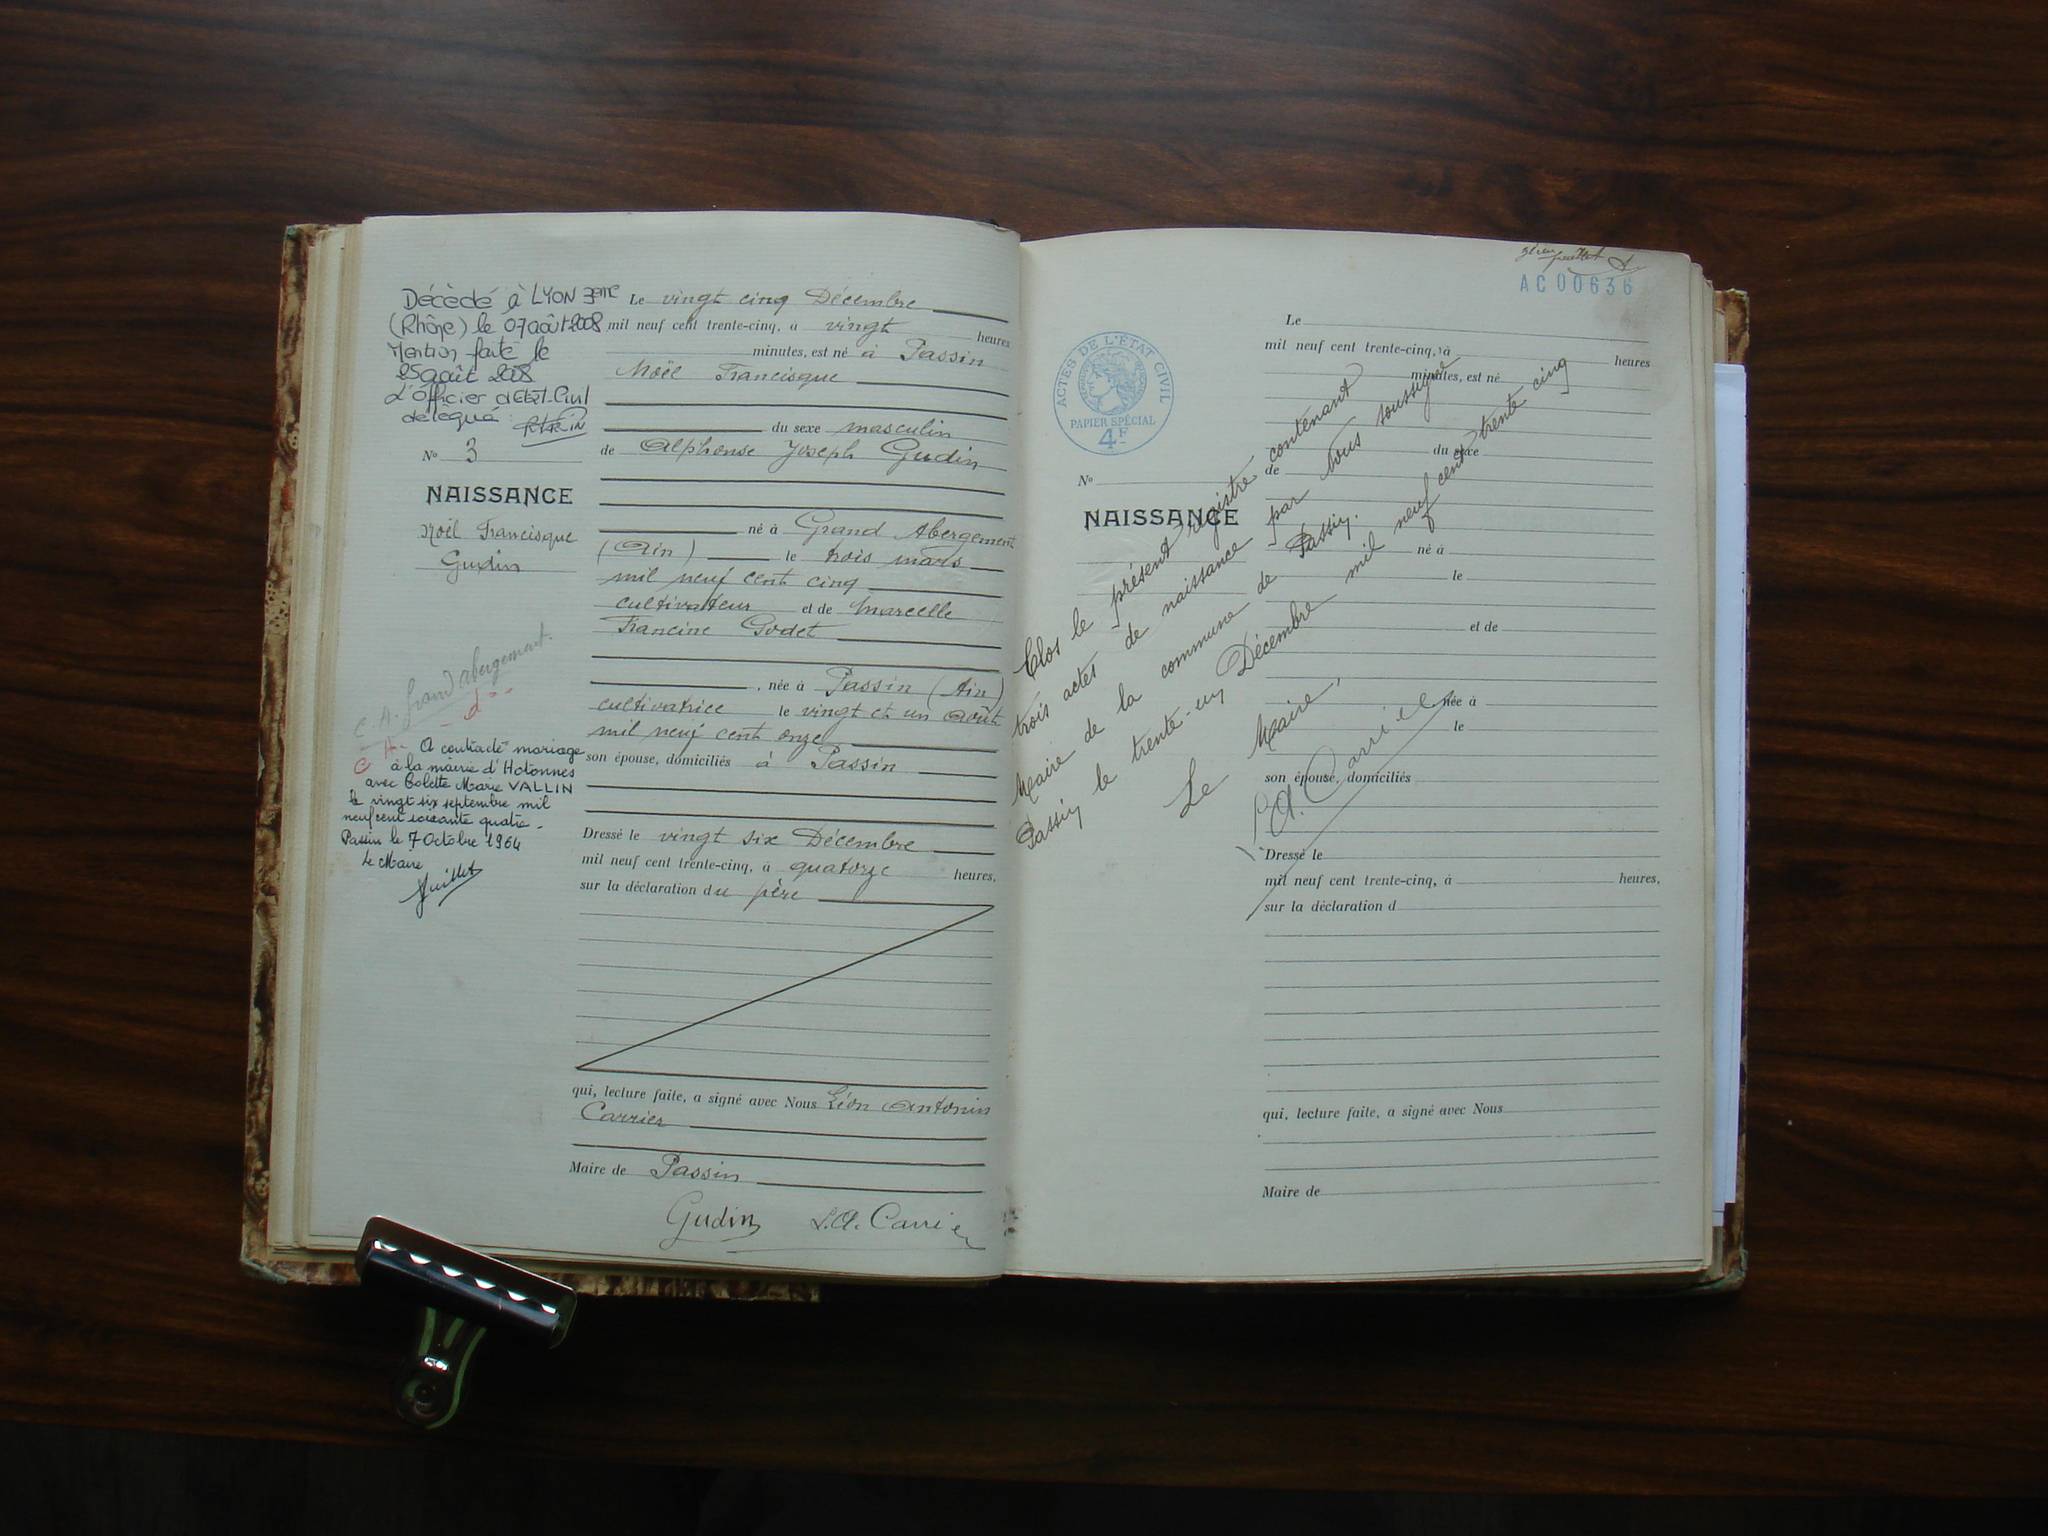 Décédé à LYON 3eme
(Rhône) le 07 août 2008
Mention faite le
25 août 2008
L'Officier d'Etat-Civil
délégué
No 3
NAISSANCE
Noël Francisque
Gudin
C. A. Grand Abergement
C A. - d° -
A contracté mariage
à la mairie d'Hotonnes
avec Colette Marie VALLIN
le vingt six septembre mil
neuf cent soixante quatre.
Passin le 7 Octobre 1964
Le Maire
Juillet
Le vingt cinq Décembre
mil neuf cent trente-cinq, à vingt heures
minutes, est né à Passin
Noël Francisque
du sexe masculin
de Alphonse Joseph Gudin
né à Grand Abergement
(Ain) le trois mars
mil neuf cent cinq
cultivateur et de Marcelle
Francine Godet
, née à Passin (Ain)
cultivatrice le vingt et un Août
mil neuf cent onze
son épouse, domiciliés à Passin
Dressé le vingt six Décembre
mil neuf cent trente-cinq, à quatorze heures,
sur la déclaration du père
qui, lecture faite, a signé avec Nous Léon Antonin
Carrier
Maire de Passin
Gudin L.A. Carrier
feuillet
AC 00636
ACTES DE L'ETAT CIVIL
PAPIER SPÉCIAL
4F
No
NAISSANCE
Le
mil neuf cent trente-cinq, à heures
minutes, est né
du sexe
de
né à
le
et de
née à
le
son épouse, domiciliés
Dressé le
mil neuf cent trente-cinq, à heures,
sur la déclaration d
qui, lecture faite, a signé avec Nous
Maire de
Clos le présent registre contenant
trois actes de naissance par nous soussigné
Maire de la commune de Passin.
Passin le trente-un Décembre mil neuf cent trente cinq
Le Maire,
L.A. Carrier